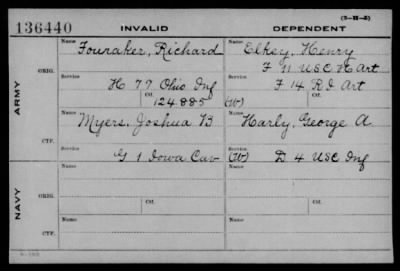 (3-H-5)
136440 INVALID DEPENDENT
ARMY
ORIG.
Name Fouraker, Richard
Service H 77 Ohio Inf
Ctf. 124.885
Name Elksy, Henry
F 11 USC H Art
Service F 14 R I Art
(W) Ctf.
CTF.
Name Myers, Joshua B
Service G 1 Iowa Cav
Name Harly, George A.
Service (W) D 4 USC Inf
NAVY
ORIG.
Name
Service
Ctf.
Name
Service
Ctf.
CTF.
Name
Name